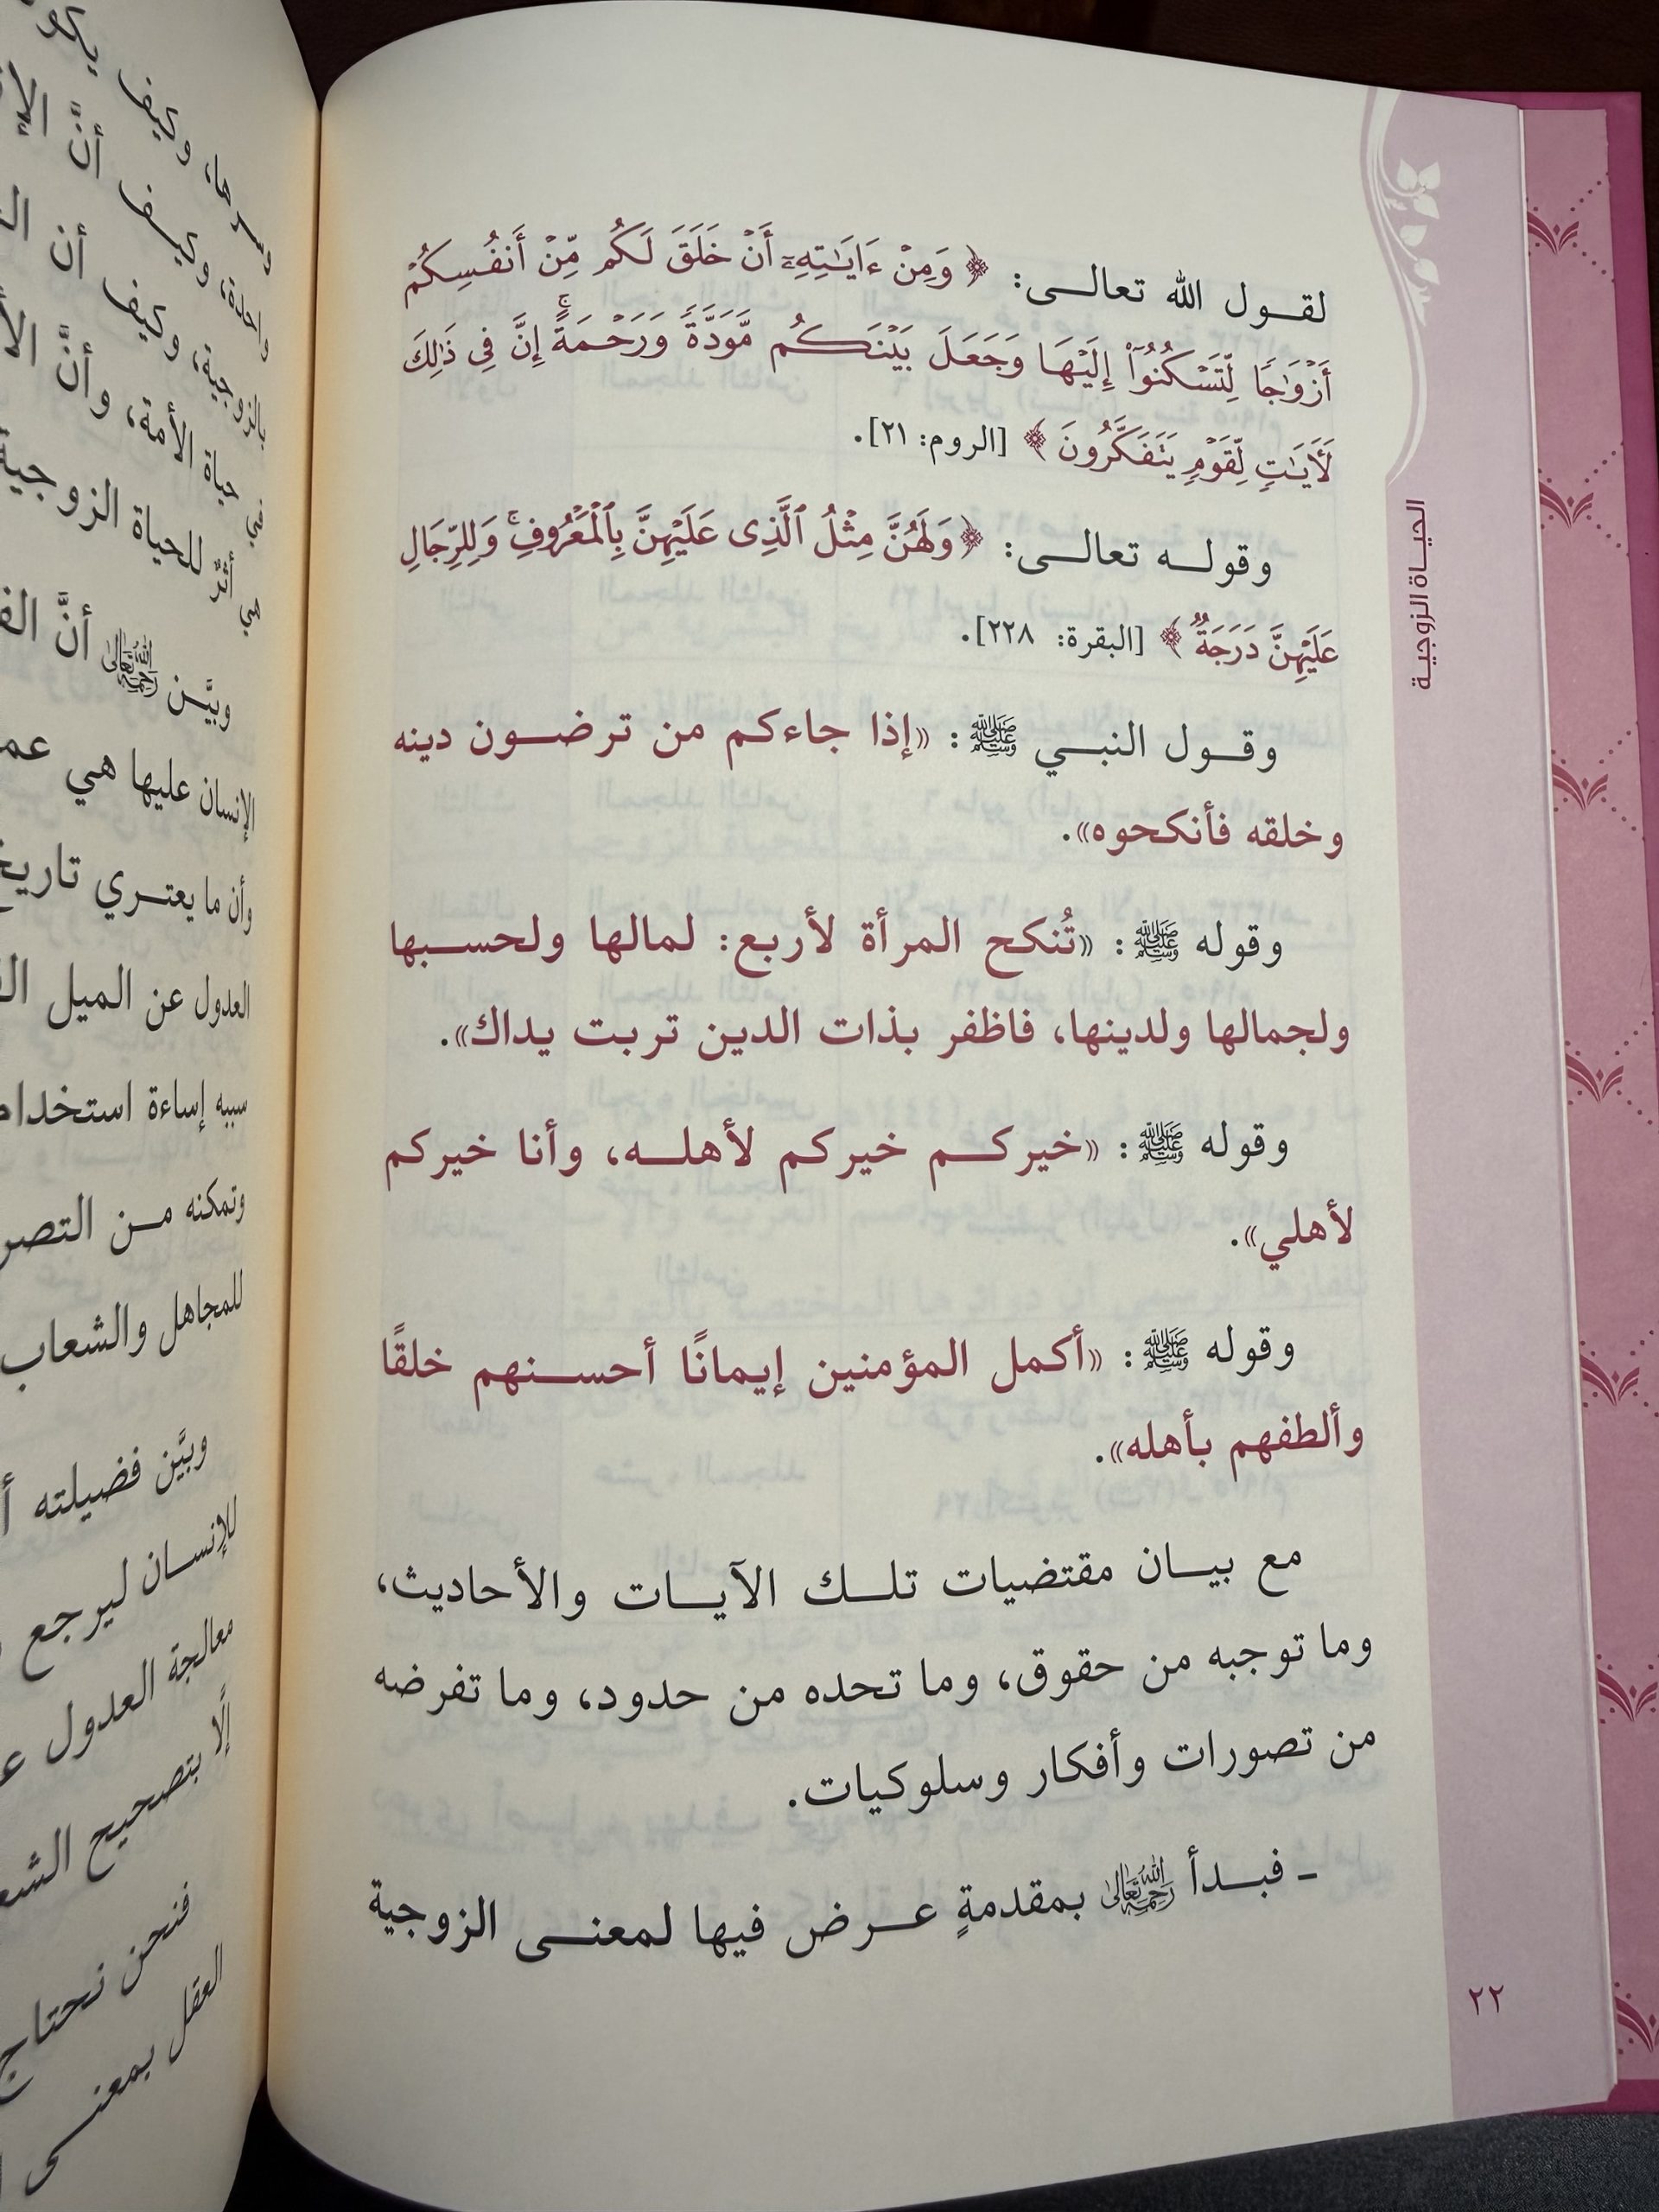 لقول الله تعالى: ﴿وَمِنْ ءَايَٰتِهِۦٓ أَنْ خَلَقَ لَكُم مِّنْ أَنفُسِكُمْ
أَزْوَٰجًا لِّتَسْكُنُوٓا۟ إِلَيْهَا وَجَعَلَ بَيْنَكُم مَّوَدَّةً وَرَحْمَةً ۚ إِنَّ فِى ذَٰلِكَ
لَءَايَٰتٍ لِّقَوْمٍ يَتَفَكَّرُونَ﴾ [الروم: ٢١].
وقوله تعالى: ﴿وَلَهُنَّ مِثْلُ ٱلَّذِى عَلَيْهِنَّ بِٱلْمَعْرُوفِ ۚ وَلِلرِّجَالِ
عَلَيْهِنَّ دَرَجَةٌ﴾ [البقرة: ٢٢٨].
وقول النبي ﷺ: «إذا جاءكم من ترضون دينه
وخلقه فأنكحوه».
وقوله ﷺ: «تُنكح المرأة لأربع: لمالها ولحسبها
ولجمالها ولدينها، فاظفر بذات الدين تربت يداك».
وقوله ﷺ: «خيركم خيركم لأهله، وأنا خيركم
لأهلي».
وقوله ﷺ: «أكمل المؤمنين إيمانًا أحسنهم خلقًا
وألطفهم بأهله».
مع بيان مقتضيات تلك الآيات والأحاديث،
وما توجبه من حقوق، وما تحده من حدود، وما تفرضه
من تصورات وأفكار وسلوكيات.
- فبدأ رحمه الله تعالى بمقدمةٍ عرض فيها لمعنى الزوجية
الحياة الزوجية
٢٢
واحدة، وكيف أنَّ
بالزوجية، وكيف أن
في حياة الأمة، وأنَّ
هي أثرٌ للحياة الزوجية
وبيَّن رحمه الله تعالى أنَّ
الإنسان عليها هي
وأن ما يعتري
العدول عن الميل
سببه إساءة
وتمكنه من
للمجاهل والشعاب
وبيَّن فضيلته
للإنسان ليرجع
معالجة العدول
إلَّا بتصحيح
فنحن نحتاج
العقل بمعنى